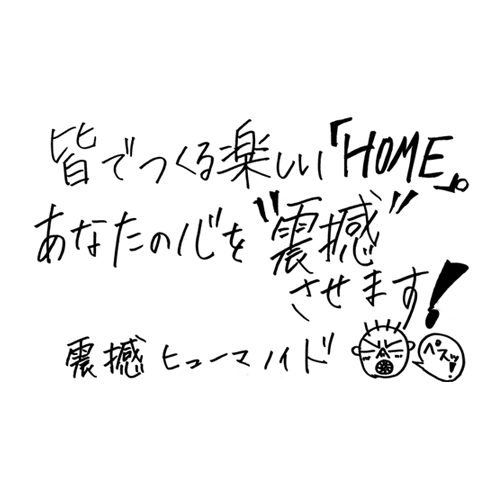 皆でつくる楽しい「HOME」。
あなたの心を"震撼"
させます!
震撼ヒューマノイド
ペスッ!